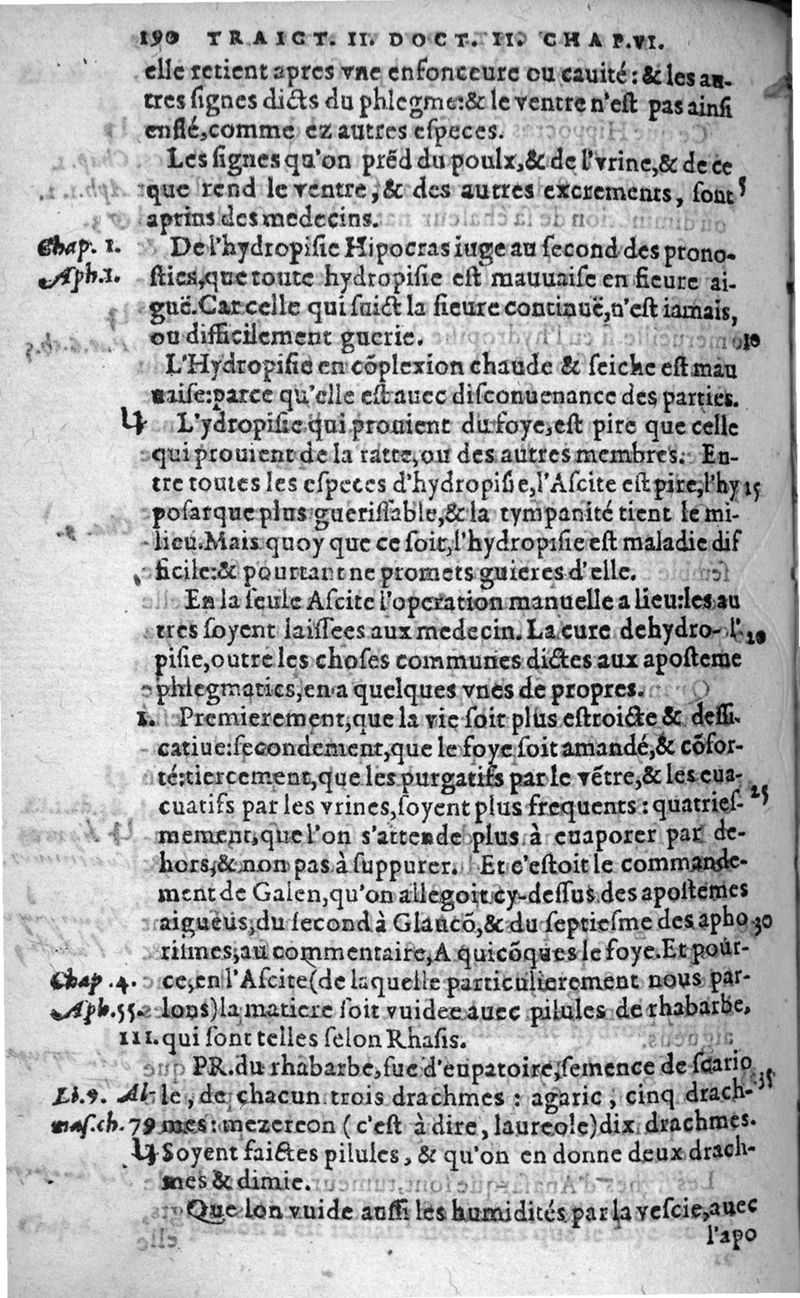 190 TRAICT. II. DOCT. II. CHAP. VI.
elle retient apres vne enfonceure ou cauité: & les au-
tres ſignes dicts du phlegme: & le ventre n'eſt pas ainſi
enflé, comme ez autres eſpeces.
Les ſignes qu'on prẽd du poulx, & de l'vrine, & de ce
que rend le ventre, & des autres excrements, ſont 5
aprins des medecins.
Chap. 1. De l'hydropiſie Hipocras iuge au ſecond des prono-
Aph. 1. ſtics, que toute hydropiſie eſt mauuaiſe en fieure ai-
guë. Car celle qui ſuict la fieure continuë, n'eſt iamais,
ou difficilement guerie. 10
L'Hydropiſie en cõplexion chaude & ſeiche eſt mau
uaiſe: parce qu'elle eſt auec diſconuenance des parties.
L'ydropiſie qui prouient du foye, eſt pire que celle
qui prouient de la ratte, ou des autres membres. En-
tre toutes les eſpeces d'hydropiſie, l'Aſcite eſt pire, l'hy 15
poſarque plus gueriſſable, & la tympanité tient le mi-
lieu. Mais quoy que ce ſoit, l'hydropiſie eſt maladie dif
ficile: & pourtant ne promets guieres d'elle.
En la ſeule Aſcite l'operation manuelle a lieu: les au
tres ſoyent laiſſees aux medecin. La cure dehydro- l' 20
piſie, outre les choſes communes dictes aux apoſteme
phlegmatics, en a quelques vnes de propres.
1. Premierement, que la vie ſoit plus eſtroicte & deſſi-
catiue: ſecondement, que le foye ſoit amandé, & cõfor-
té: tiercement, que les purgatifs par le vẽtre, & les eua-
cuatifs par les vrines, ſoyent plus frequents: quatrieſ- 25
mement, que l'on s'attende plus à euaporer par de-
hors, & non pas à ſuppurer. Et c'eſtoit le commande-
ment de Galen, qu'on allegoit cy-deſſus des apoſtemes
aigueus, du ſecond à Glaucõ, & du ſeptieſme des apho 30
riſmes, au commentaire, A quicõques le foye. Et pour-
Chap. 4. ce, en l'Aſcite (de laquelle particulierement nous par-
Aph. 55. lons) la matiere ſoit vuidee auec pilules de rhabarbe,
III. qui ſont telles ſelon Rhaſis.
PR. du rhabarbe, ſuc d'eupatoire, ſemence de ſcario
Li. 9. Al- le, de chacun trois drachmes: agaric, cinq drach- 35
maſ. ch. 79 mes: mezereon (c'eſt à dire, laureole) dix drachmes.
Soyent faictes pilules, & qu'on en donne deux drach-
mes & dimie.
Que lon vuide auſſi les humidités par la veſcie, auec
l'apo